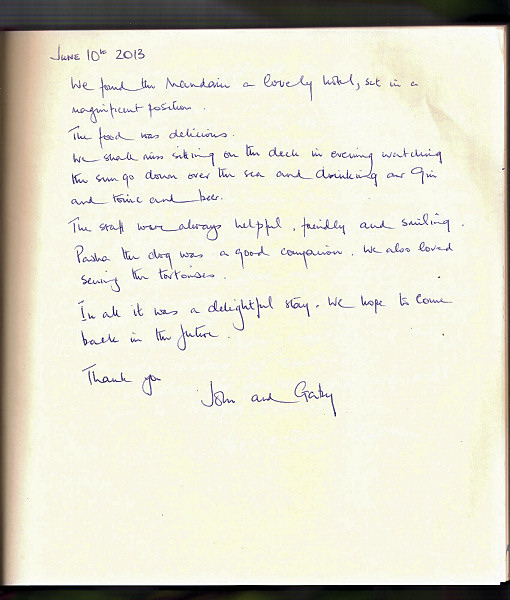 JUNE 10th 2013
We found the Mandarin a lovely hotel, set in a
magnificent position.
The food was delicious.
We shall miss sitting on the deck in evening watching
the sun go down over the sea and drinking our gin
and tonic and beer.
The staff were always helpful, friendly and smiling.
Pasha the dog was a good companion. We also loved
seeing the tortoises.
In all it was a delightful stay. We hope to come
back in the future.
Thank you
John and Gaby